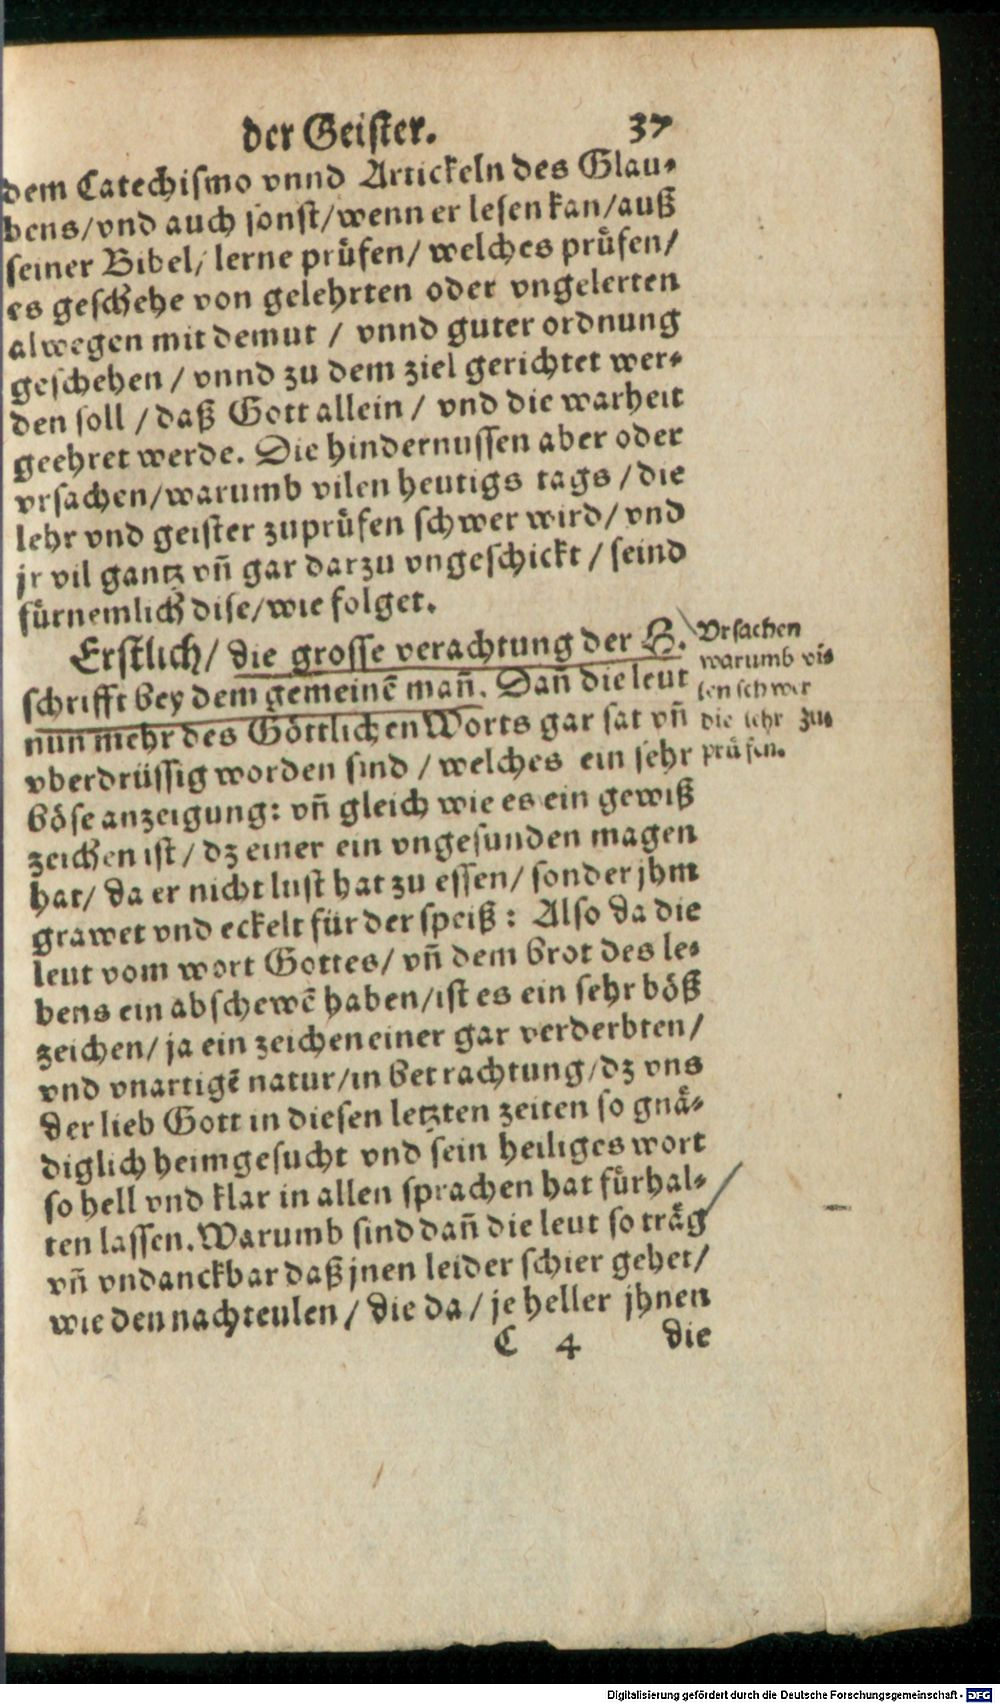 der Geister. 37
dem Catechismo vnnd Artickeln des Glau-
bens/vnd auch sonst/wenn er lesen kan/auß
seiner Bibel/ lerne pruͤfen/ welches pruͤfen/
es geschehe von gelehrten oder vngelerten
alwegen mit demut / vnnd guter ordnung
geschehen / vnnd zu dem ziel gerichtet wer-
den soll / daß Gott allein / vnd die warheit
geehret werde. Die hindernussen aber oder
vrsachen/warumb vilen heutigs tags / die
lehr vnd geister zupruͤfen schwer wird/ vnd
jr vil gantz vñ gar darzu vngeschickt / seind
fuͤrnemlich dise/wie folget.
Erstlich/ die grosse verachtung der H.
schrifft bey dem gemeinẽ mañ. Dañ die leut
nun mehr des Goͤttlichen Worts gar sat vñ
vberdrüssig worden sind / welches ein sehr
boͤse anzeigung: vñ gleich wie es ein gewiß
zeichen ist / dz einer ein vngesunden magen
hat/ da er nicht lust hat zu essen/ sonder jhm
grawet vnd eckelt für der speiß: Also da die
leut vom wort Gottes/ vñ dem brot des le-
bens ein abschewẽ haben/ist es ein sehr boͤß
zeichen/ ja ein zeichen einer gar verderbten/
vnd vnartigẽ natur/in betrachtung/dz vns
der lieb Gott in diesen letzten zeiten so gnaͤ-
diglich heimgesucht vnd sein heiliges wort
so hell vnd klar in allen sprachen hat fuͤrhal-
ten lassen. Warumb sind dañ die leut so traͤg
vñ vndanckbar daß jnen leider schier gehet/
wie den nachteulen / die da / je heller jhnen
C 4 die
Vrsachen
warumb vi-
len schwer
die lehr zu-
pruͤfen.
Digitalisierung gefördert durch die Deutsche Forschungsgemeinschaft - DFG